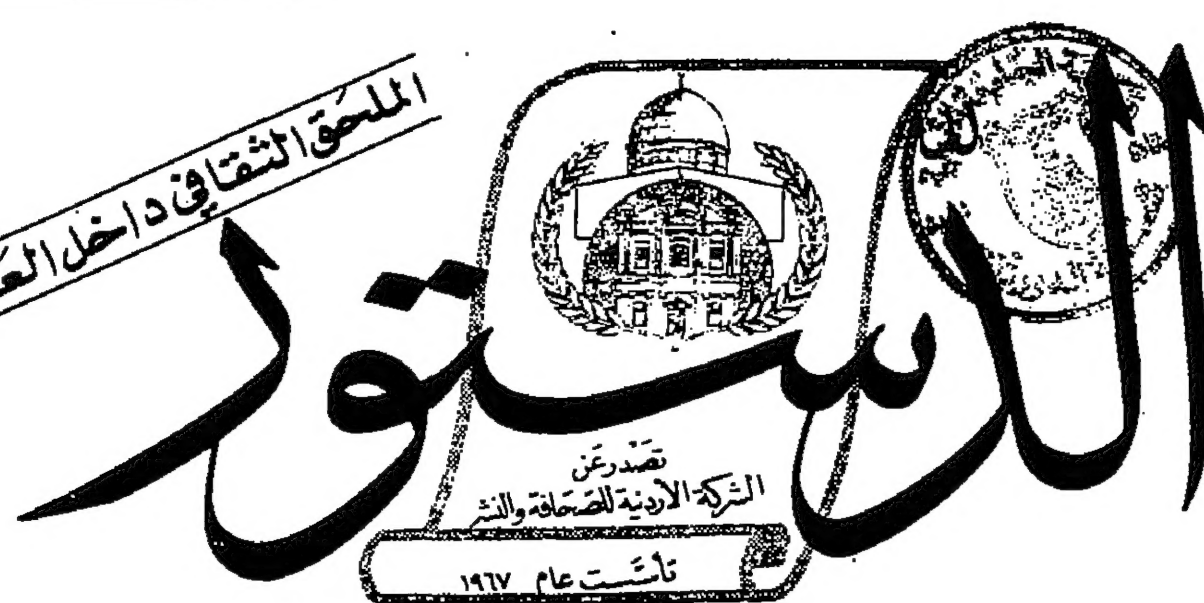 الملحق الثقافي داخل
الدستور
تصدر عن
الشركة الأردنية للصحافة والنشر
تأسست عام ١٩٦٧